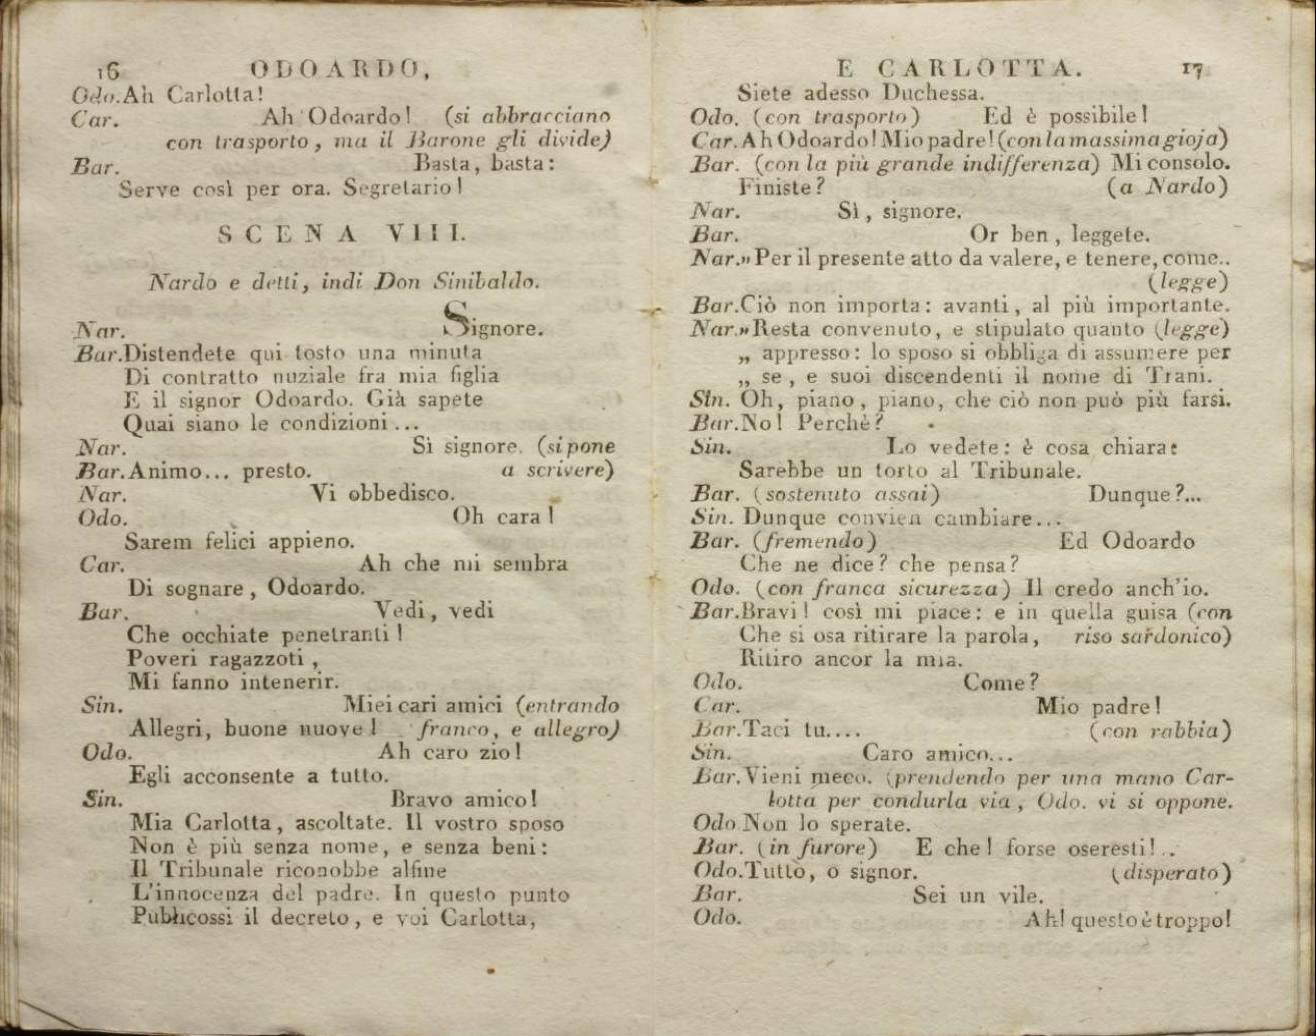 16 ODOARDO,
Odo. Ah Carlotta!
Car. Ah Odoardo! (si abbracciano
con trasporto, ma il Barone gli divide)
Bar. Basta, basta:
Serve così per ora. Segretario!
SCENA VIII.
Nardo e detti, indi Don Sinibaldo.
Nar. Signore.
Bar. Distendete qui tosto una minuta
Di contratto nuziale fra mia figlia
E il signor Odoardo. Già sapete
Quai siano le condizioni...
Nar. Sì signore. (si pone
Bar. Animo... presto. a scrivere)
Nar. Vi obbedisco.
Odo. Oh cara!
Sarem felici appieno.
Car. Ah che mi sembra
Di sognare, Odoardo.
Bar. Vedi, vedi
Che occhiate penetranti!
Poveri ragazzoti,
Mi fanno intenerir.
Sin. Miei cari amici (entrando
Allegri, buone nuove! franco, e allegro)
Odo. Ah caro zio!
Egli acconsente a tutto.
Sin. Bravo amico!
Mia Carlotta, ascoltate. Il vostro sposo
Non è più senza nome, e senza beni:
Il Tribunale riconobbe alfine
L'innocenza del padre. In questo punto
Pubblicossi il decreto, e voi Carlotta,
E CARLOTTA. 17
Siete adesso Duchessa.
Odo. (con trasporto) Ed è possibile!
Car. Ah Odoardo! Mio padre! (con la massima gioja)
Bar. (con la più grande indifferenza) Mi consolo.
Finiste? (a Nardo)
Nar. Sì, signore.
Bar. Or ben, leggete.
Nar. » Per il presente atto da valere, e tenere, come..
(legge)
Bar. Ciò non importa: avanti, al più importante.
Nar. » Resta convenuto, e stipulato quanto (legge)
„ appresso: lo sposo si obbliga di assumere per
„ se, e suoi discendenti il nome di Trani.
Sin. Oh, piano, piano, che ciò non può più farsi.
Bar. No! Perchè?
Sin. Lo vedete: è cosa chiara:
Sarebbe un torto al Tribunale.
Bar. (sostenuto assai) Dunque?...
Sin. Dunque convien cambiare...
Bar. (fremendo) Ed Odoardo
Che ne dice? che pensa?
Odo. (con franca sicurezza) Il credo anch'io.
Bar. Bravi! così mi piace: e in quella guisa (con
Che si osa ritirare la parola, riso sardonico)
Ritiro ancor la mia.
Odo. Come?
Car. Mio padre!
Bar. Taci tu.... (con rabbia)
Sin. Caro amico...
Bar. Vieni meco. (prendendo per una mano Car-
lotta per condurla via, Odo. vi si oppone.
Odo Non lo sperate.
Bar. (in furore) E che! forse oseresti!..
Odo. Tutto, o signor. (disperato)
Bar. Sei un vile.
Odo. Ah! questo è troppo!